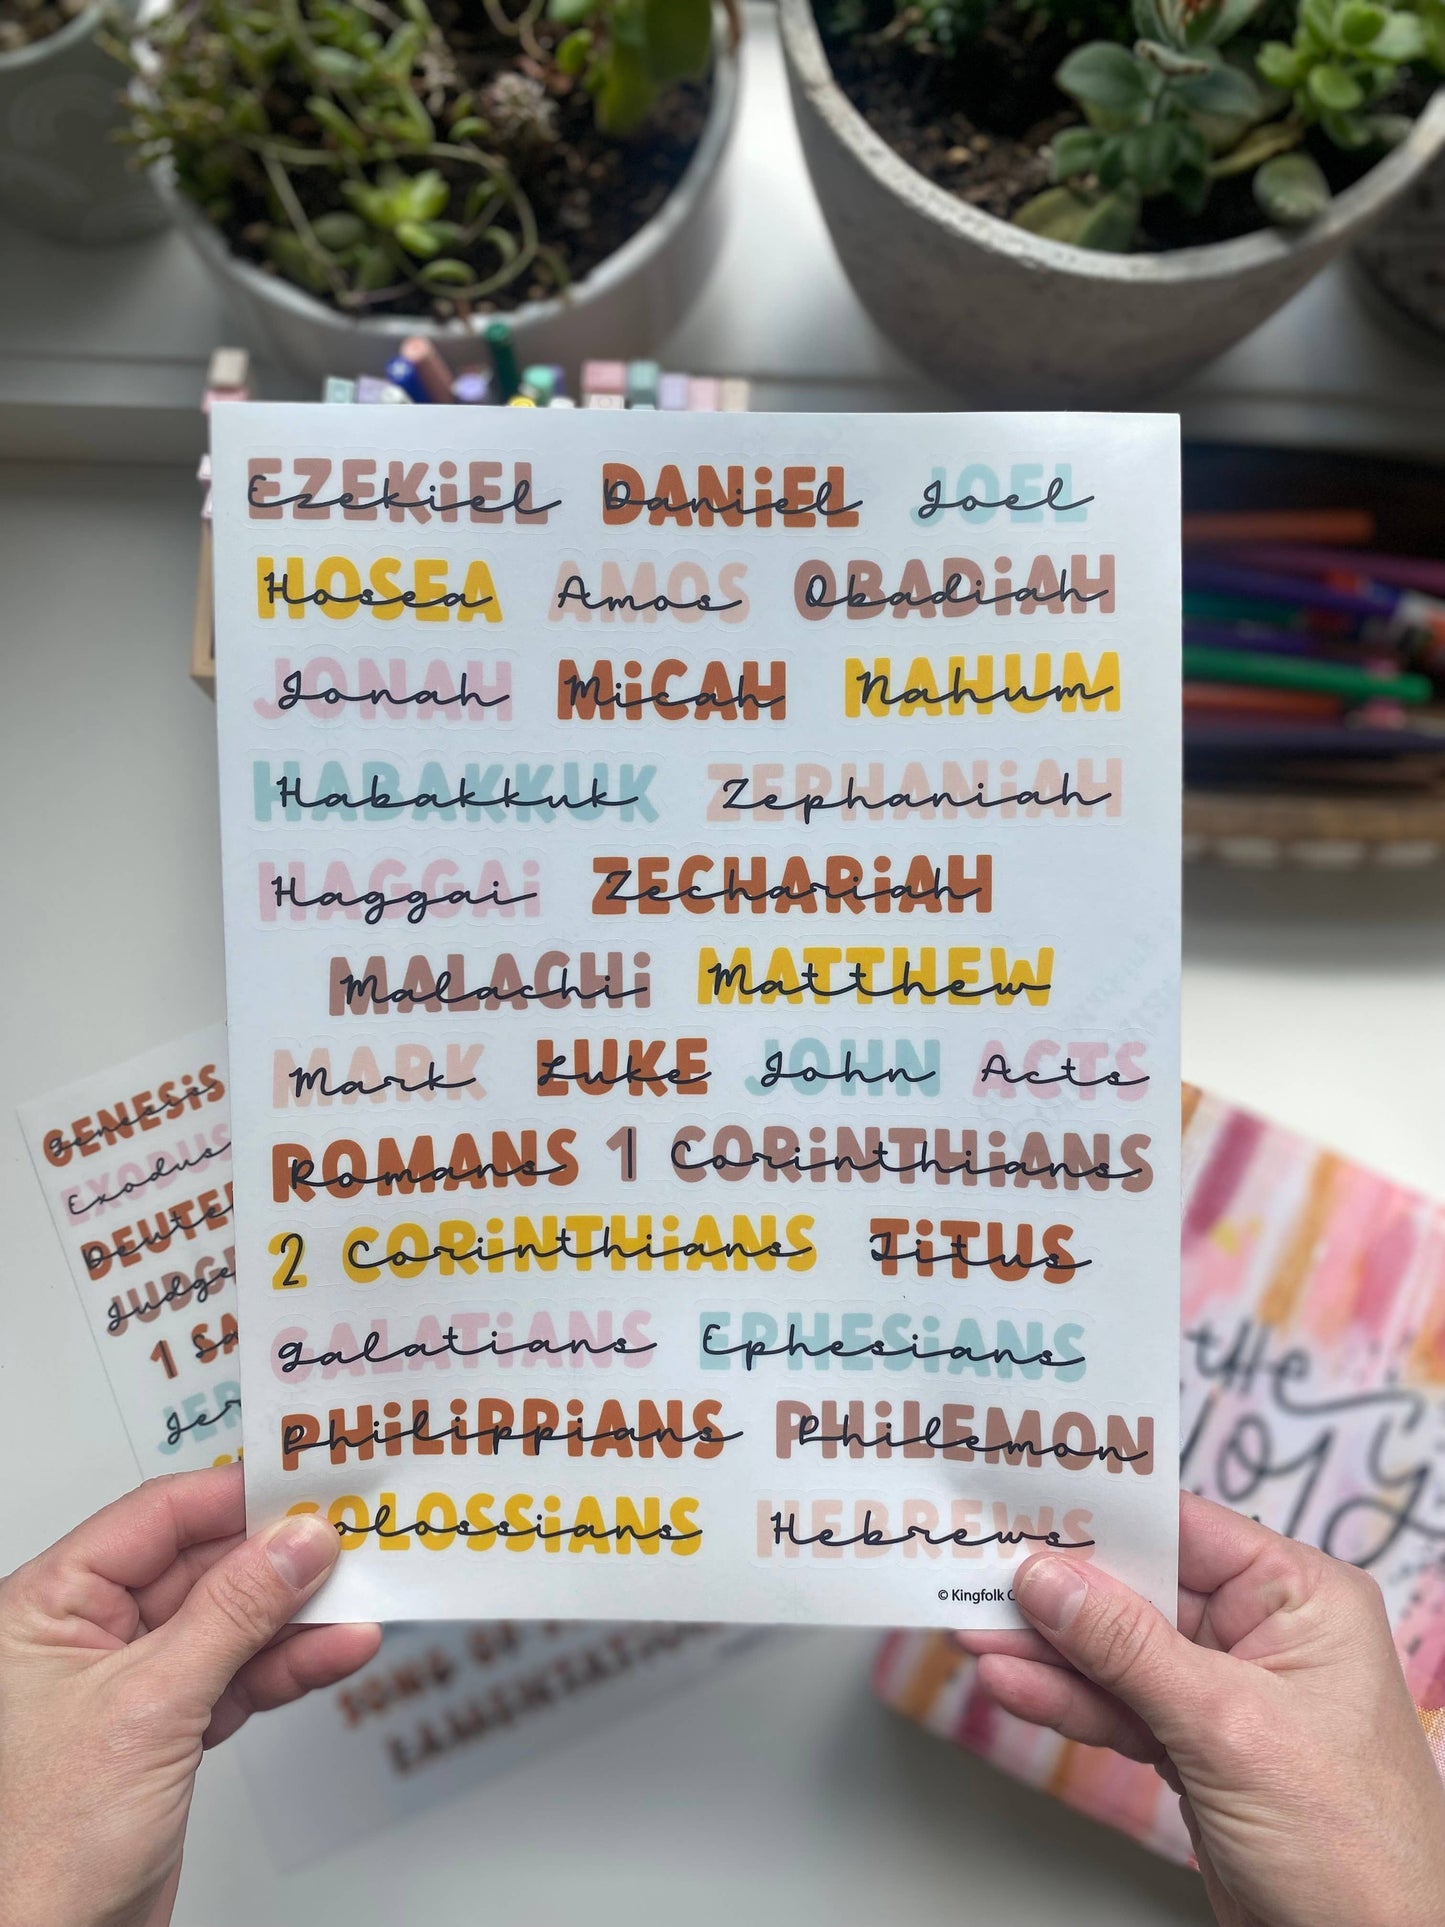 EZEKIEL Ezekiel DANIEL Daniel JOEL Joel
HOSEA Hosea AMOS Amos OBADIAH Obadiah
JONAH Jonah MICAH Micah NAHUM Nahum
HABAKKUK Habakkuk ZEPHANIAH Zephaniah
HAGGAI Haggai ZECHARIAH Zechariah
MALACHI Malachi MATTHEW Matthew
MARK Mark LUKE Luke JOHN John ACTS Acts
ROMANS Romans 1 CORINTHIANS Corinthians
2 CORINTHIANS Corinthians TITUS Titus
GALATIANS Galatians EPHESIANS Ephesians
PHILIPPIANS Philippians PHILEMON Philemon
COLOSSIANS olossians HEBREWS Hebrews
© Kingfolk C
GENESIS Genesis
EXODUS Exodus
DEUTE Deute
JUDGE Judge
1 SA Sa
JER Jer
SONG OF
LAMENTATION
the